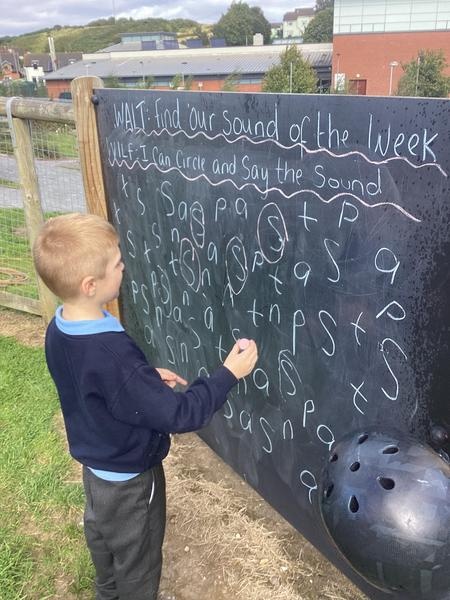 WALT: Find our sound of the week
WILF: I can circle and say the sound
t s s a s p a s t p
s t s n s a s p t a s a
p s p n a t n p s t p
a s n t s n a s t s
s a s n p a
a